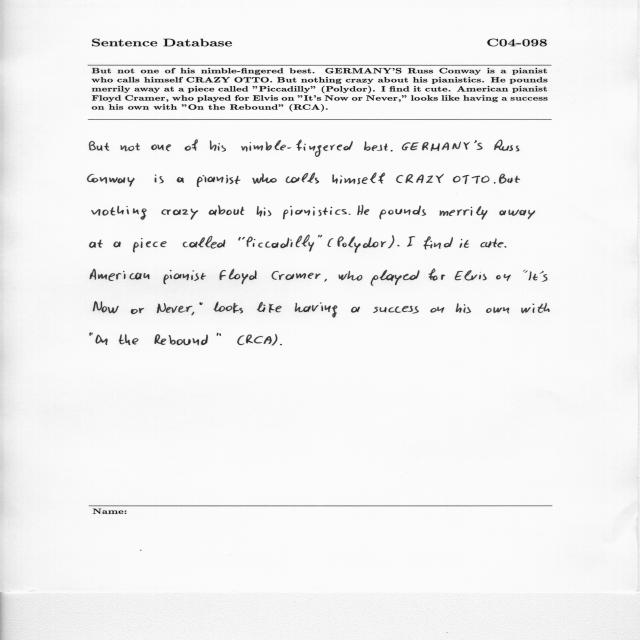 Sentence Database C04-098
But not one of his nimble-fingered best. GERMANY'S Russ Conway is a pianist
who calls himself CRAZY OTTO. But nothing crazy about his pianistics. He pounds
merrily away at a piece called "Piccadilly" (Polydor). I find it cute. American pianist
Floyd Cramer, who played for Elvis on "It's Now or Never," looks like having a success
on his own with "On the Rebound" (RCA).
But not one of his nimble-fingered best. GERMANY'S Russ
Conway is a pianist who calls himself CRAZY OTTO. But
nothing crazy about his pianistics. He pounds merrily away
at a piece called "Piccadilly" (Polydor). I find it cute.
American pianist Floyd Cramer, who played for Elvis on "It's
Now or Never," looks like having a success on his own with
"On the Rebound" (RCA).
Name: